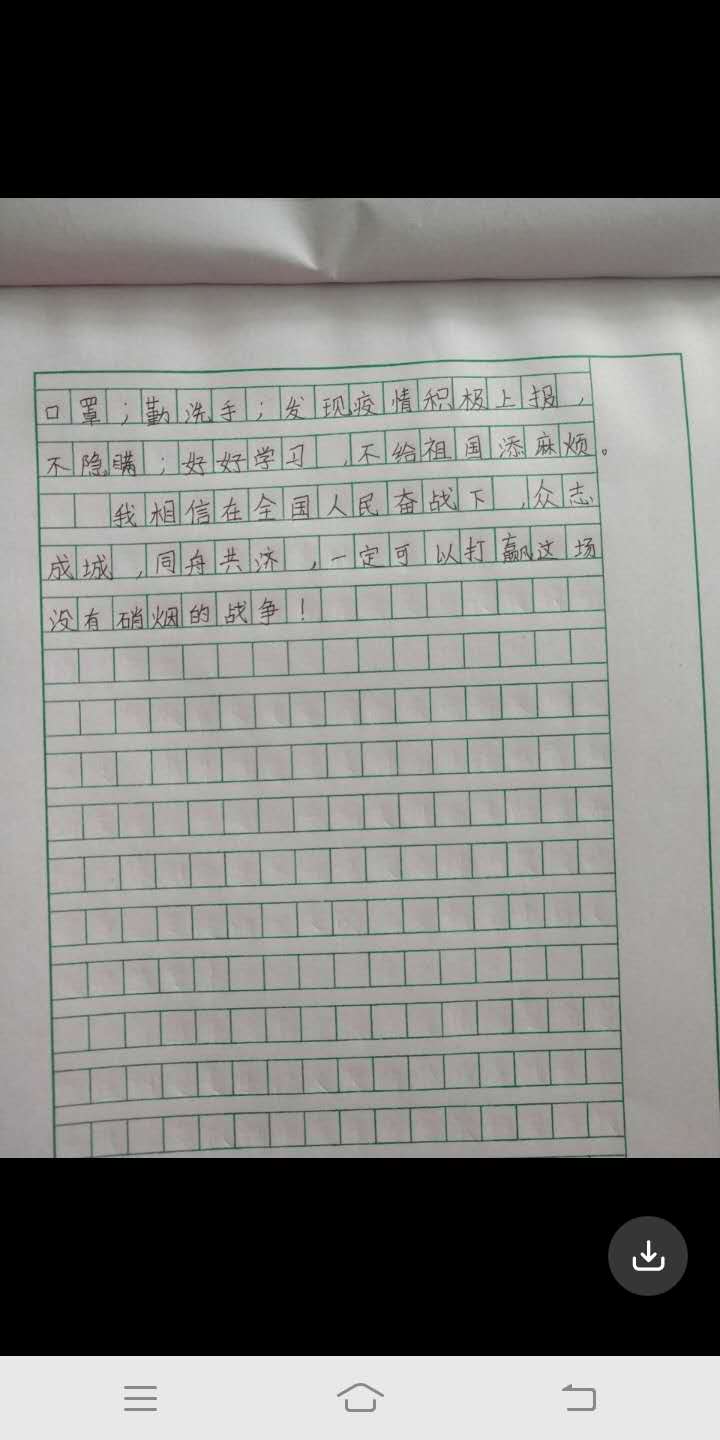 口罩；勤洗手；发现疫情积极上报，
不隐瞒；好好学习，不给祖国添麻烦。
我相信在全国人民奋战下，众志
成城，同舟共济，一定可以打赢这场
没有硝烟的战争！